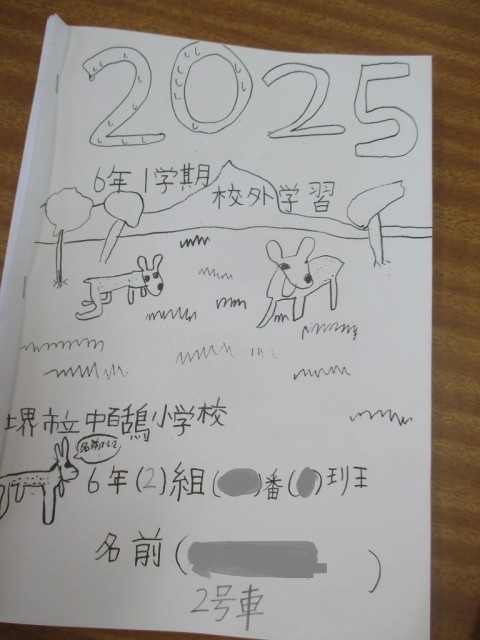 2025
6年1学期
校外学習
堺市立中百舌鳥小学校
6年(2)組( )番( )班
名前( )
2号車